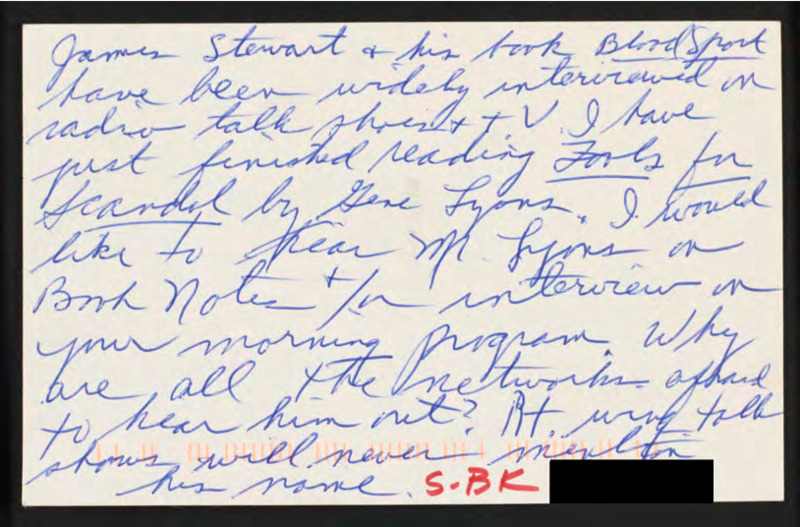 James Stewart & his book Blood Sport
have been widely interviewed on
radio talk shows + TV. I have
just finished reading Fools for
Scandal by Gene Lyons. I would
like to hear Mr. Lyons on
Book Notes +/or interview on
your morning program. Why
are all the networks afraid
to hear him out? Rt. wing talk
shows will never mention
his name. S-BK